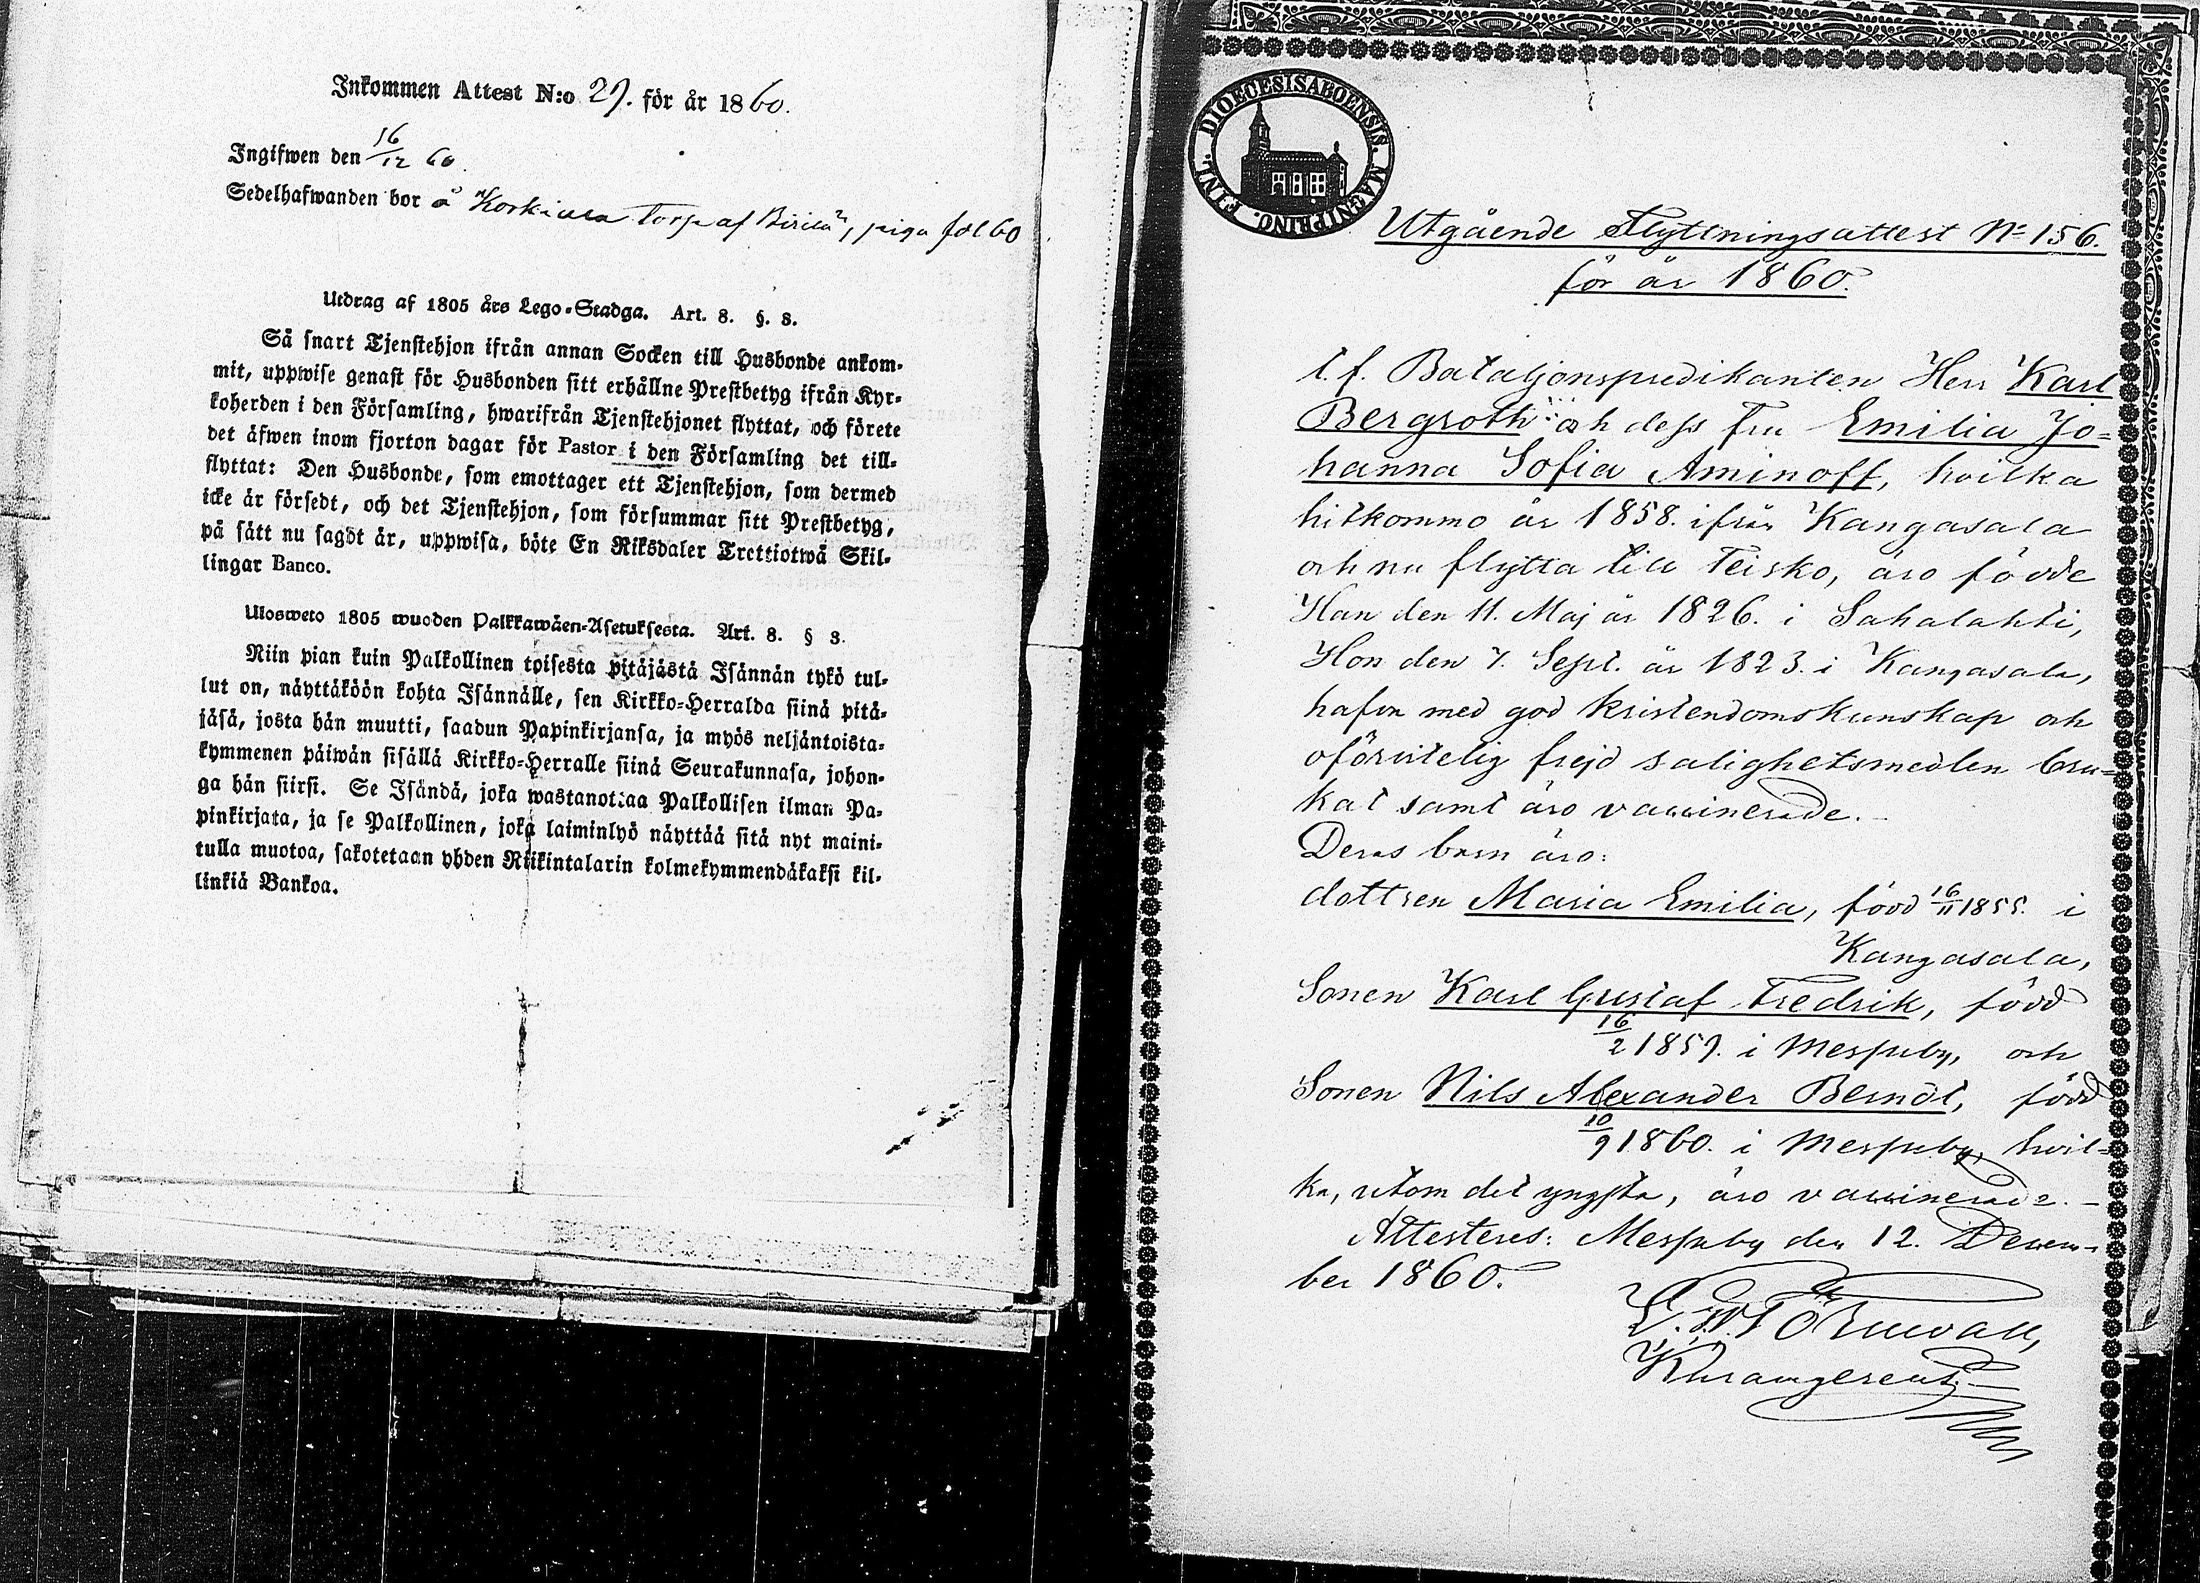 Inkommen Attest N:o 29. för år 1860.
Ingifwen den 16/12 60.
Sedelhafwanden bor å torp af piga fol 60
Utdrag af 1805 års Lego-Stadga. Art. 8. §. 8.
Så snart Tjenstehjon ifrån annan Socken till Husbonde ankom-
mit, uppwise genast för Husbonden sitt erhållne Prestbetyg ifrån Kyr-
koherden i den Församling, hwarifrån Tjenstehjonet flyttat, och förete
det äfwen inom fjorton dagar för Pastor i den Församling det till-
flyttat: Den Husbonde, som emottager ett Tjenstehjon, som dermed
icke är försedt, och det Tjenstehjon, som försummar sitt Prestbetyg,
på sätt nu sagdt är, uppwisa, böte En Riksdaler Trettiotwå Skil-
lingar Banco.
Ulosweto 1805 wuoden Palkkawäen-Asetuksesta. Art. 8. § 8.
Niin pian kuin Palkollinen toisesta pitäjästä Isännän tykö tul-
lut on, näyttäköön kohta Isännälle, sen Kirkko-Herralda siinä pitä-
jäsä, josta hän muutti, saadun Papinkirjansa, ja myös neljäntoista-
kymmenen päiwän sisällä Kirkko-Herralle siinä Seurakunnasa, johon-
ga hän siirsi. Se Isändä, joka wastanottaa Palkollisen ilman Pa-
pinkirjata, ja se Palkollinen, joka laiminlyö näyttää sitä nyt maini-
tulla muotoa, sakotetaan yhden Riikintalarin kolmekymmendäkaksi kil-
linkiä Bankoa.
DIOECESIS ABOENSIS. MAGNI PRINC. FINL.
Utgående Flyttningsattest No 156.
för år 1860.
t. f. Bataljonspredikanten Herr Karl
Bergroth och dess Fru Emilia Jo-
hanna Sofia Aminoff, hvilka
hitkommo år 1858. ifrån Kangasala
och nu flytta till Teisko, äro födde
Han den 11. Maj år 1826. i Sahalahti,
Hon den 7. Sept. år 1823. i Kangasala,
hafva med god kristendomskunskap och
oförvitelig frejd salighetsmedlen bru-
kat samt äro vaccinerade.
Deras barn äro:
dottren Maria Emilia, född 16/11 1855. i
Kangasala,
Sonen Karl Gustaf Fredrik, född
16/2 1859. i Messuby, och
Sonen Nils Alexander Berndt, född
10/9 1860. i Messuby, hvil-
ka, utom det yngsta, äro vaccinerade.
Attesteres: Messuby den 12. Decem-
ber 1860.
Törnvall,